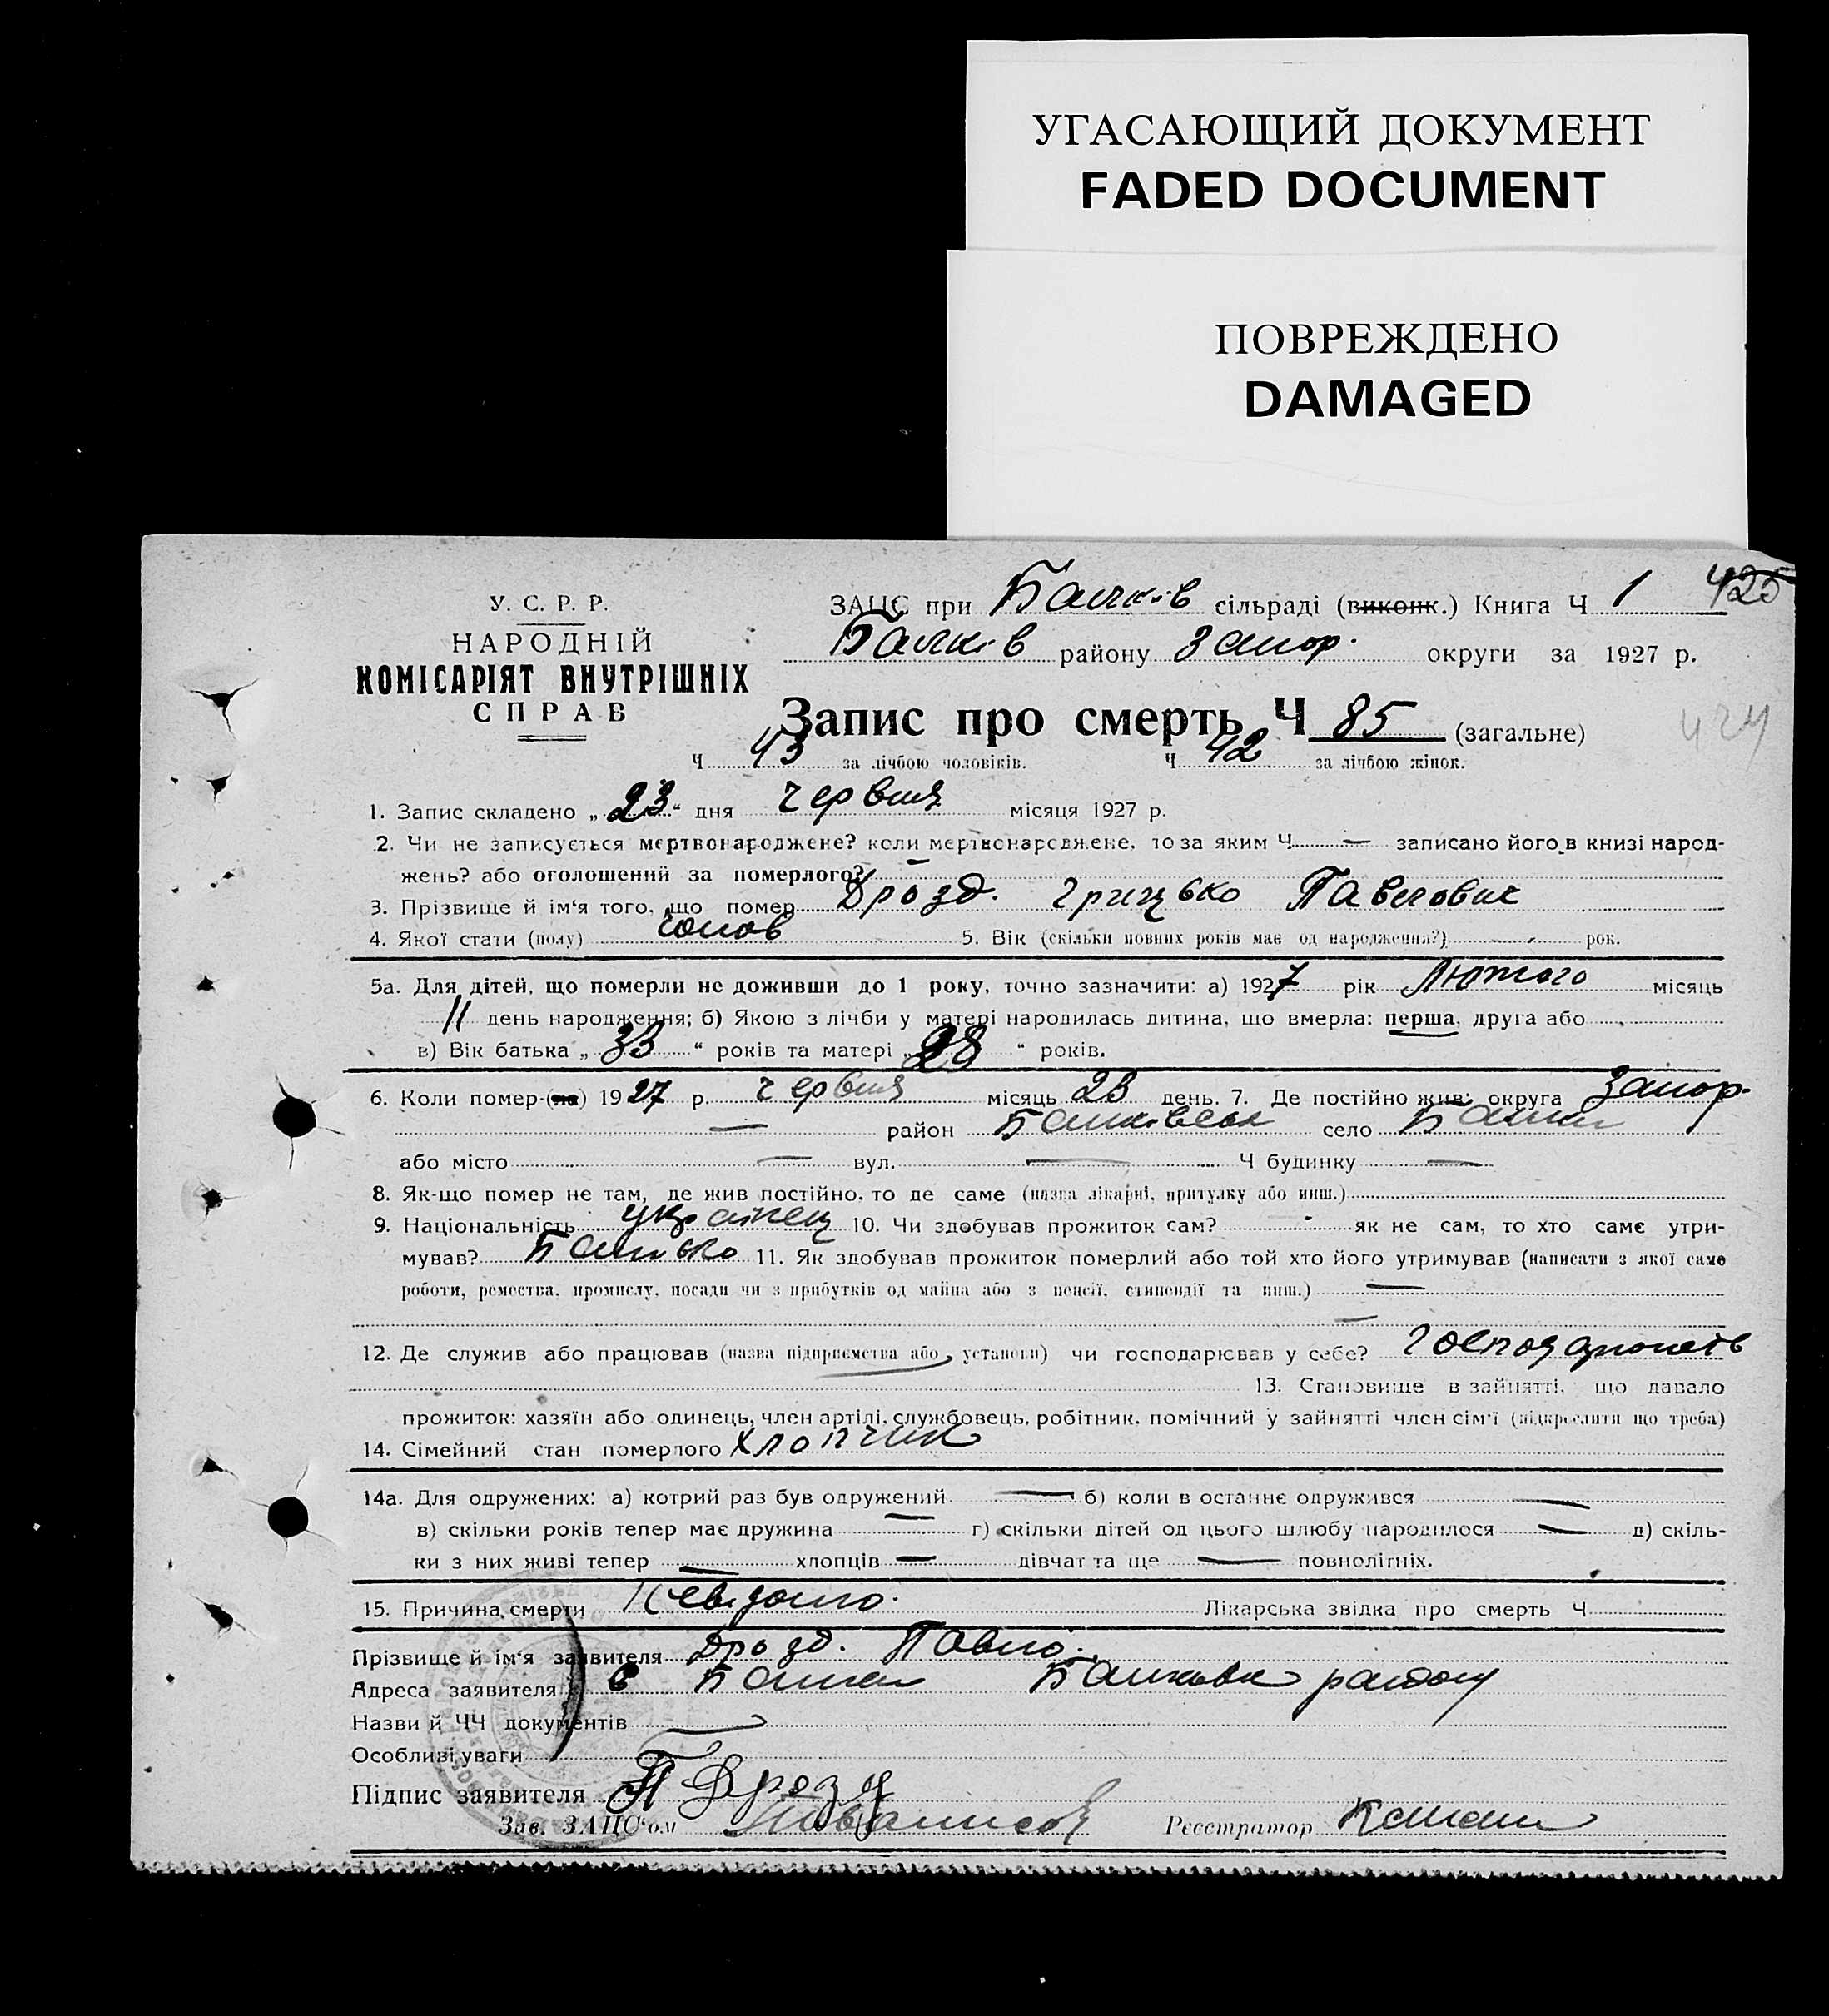 УГАСАЮЩИЙ ДОКУМЕНТ
FADED DOCUMENT
ПОВРЕЖДЕНО
DAMAGED
У. С. Р. Р.
НАРОДНІЙ
КОМІСАРІЯТ ВНУТРІШНІХ
СПРАВ
ЗАЦС при Балків сільраді (виконк.) Книга Ч 1 425
Балків району Запор. округи за 1927 р.
Запис про смерть Ч 85 (загальне) 424
Ч 43 за лічбою чоловіків. Ч 42 за лічбою жінок.
1. Запис складено „23“ дня червня місяця 1927 р.
2. Чи не записується мертвонароджене? коли мертвонароджене, то за яким Ч — записано його в книзі народ-
жень? або оголошений за померлого? —
3. Прізвище й ім'я того, що помер Дрозд. Грицько Павлович
4. Якої стати (полу) чолов 5. Вік (скільки повних років має од народження?) рок.
5а. Для дітей, що померли не доживши до 1 року, точно зазначити: а) 1927 рік Лютого місяць
11 день народження; б) Якою з лічби у матері народилась дитина, що вмерла: перша, друга або
в) Вік батька „33“ років та матері „28“ років.
6. Коли помер-(ла) 1927 р. червня місяць 23 день. 7. Де постійно жив: округа Запор.
— район Балківськ село Балки
або місто — вул. — Ч будинку —
8. Як-що помер не там, де жив постійно, то де саме (назва лікарні, притулку або инш.)
9. Національність українец 10. Чи здобував прожиток сам? як не сам, то хто саме утри-
мував? Батько 11. Як здобував прожиток померлий або той хто його утримував (написати з якої саме
роботи, ремества, промислу, посади чи з прибутків од майна або з пенсії, стипендії та инш.) —
—
12. Де служив або працював (назва підприємства або установи) чи господарював у себе?
13. Становище в зайнятті, що давало
прожиток: хазяїн або одинець, член артілі, службовець, робітник, помічний у зайнятті член сім'ї (підкреслити що треба)
14. Сімейний стан померлого хлопчик
14а. Для одружених: а) котрий раз був одружений — б) коли в останнє одружився —
в) скільки років тепер має дружина — г) скільки дітей од цього шлюбу народилося — д) скіль-
ки з них живі тепер — хлопців — дівчат та ще — повнолітніх.
15. Причина смерти Невідомо. Лікарська звідка про смерть Ч
Прізвище й ім'я заявителя Дрозд. Павло.
Адреса заявителя с Балки Балковск району
Назви й ЧЧ документів —
Особливі уваги
Підпис заявителя П Дрозд
Зав. ЗАЦС'ом Реєстратор